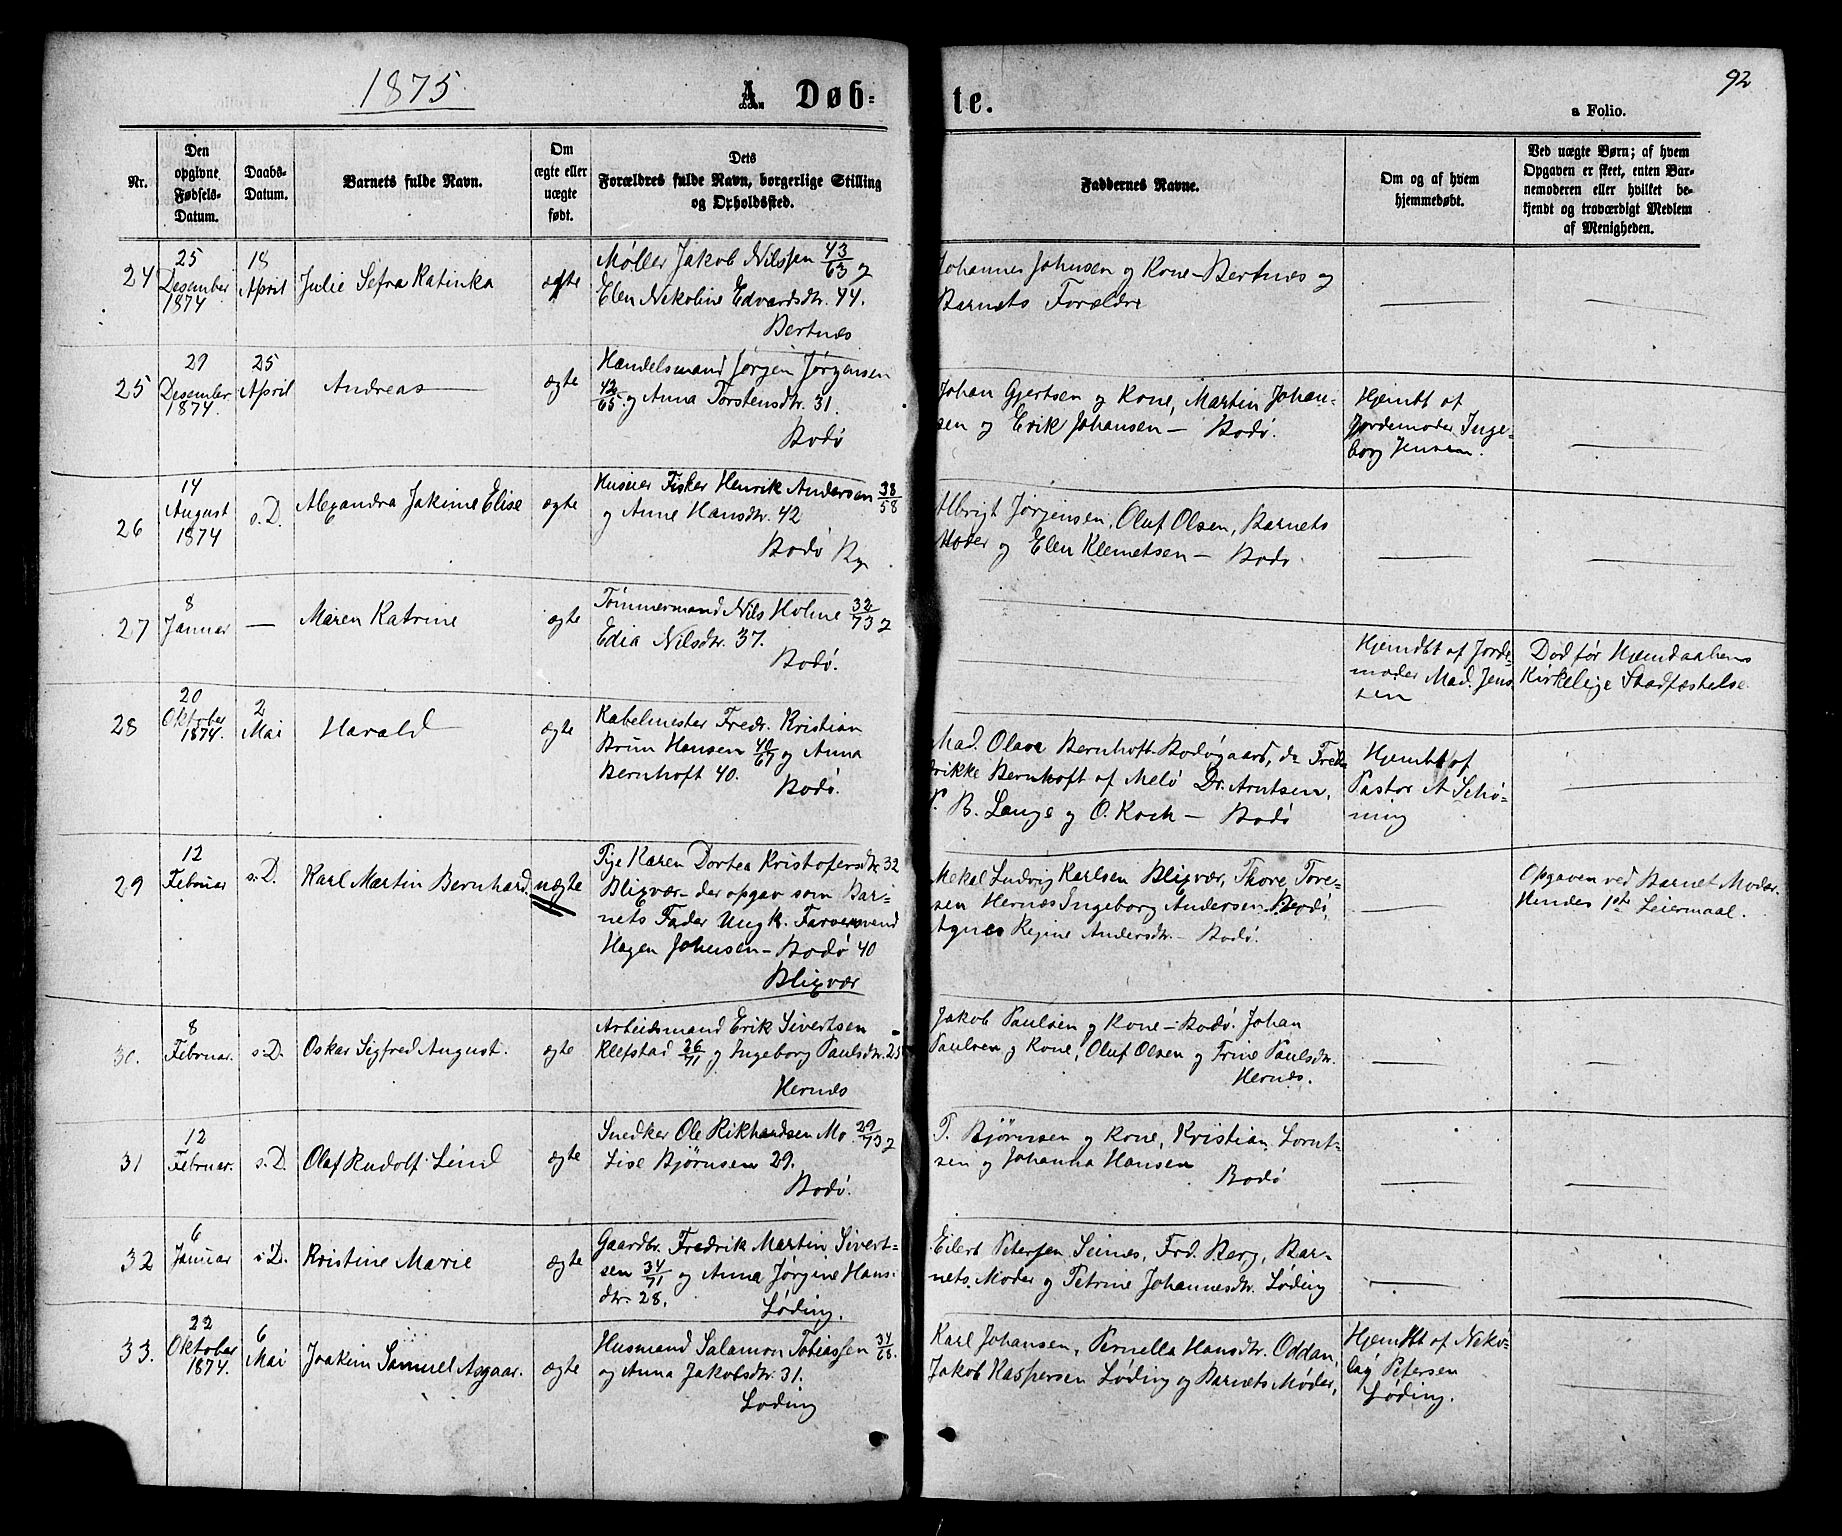 1875.
A Døb-
te.
92
a Folio.
Nr.
Den
opgivne
Fødsels-
Datum.
Daabs-
Datum.
Barnets fulde Navn.
Om
ægte eller
uægte
født.
Dets
Forældres fulde Navn, borgerlige Stilling
og Opholdssted.
Faddernes Navne.
Om og af hvem
hjemmedøbt.
Ved uægte Børn; af hvem
Opgaven er skeet, enten Bar-
nemoderen eller hvilket be-
kjendt og troværdigt Medlem
af Menigheden.
24
25
Desember
1874
18
April
Julie Sefra Katinka
ægte
Møller Jakob Nilssen 43/63 og
Elen Nekoline Edvardsdtr. 44.
Bertnes
Johannes Johnsen og Kone - Bertnes og
Barnets Forældre
25
29
Desember
1874.
25
April
Andreas
ægte
Handelsmand Jørgen Jørgensen
42/65. og Anna Torstensdtr. 31.
Bodø
Johan Gjertsen og Kone, Martin Johan-
sen og Erik Johansen - Bodø.
Hjemdbt af
Jordemoder Inge-
borg Jensen.
26
14
August
1874
s. D.
Alexandra Jakime Elise
ægte
Huseier Fisker Henrik Andersen 38/58
og Anne Hansdtr. 42
Bodø By
Albrigt Jørgensen, Oluf Olsen, Barnets
Moder og Elen Klemetsen - Bodø.
27
8
Januar
—
Maren Katrine
ægte
Tømmermand Nils Holme 32/73 og
Edia Nilsdtr. 37.
Bodø.
Hjemdbt af Jorde-
moder Mad. Jens-
sen
Død før Hjemdaabens
Kirkelige Stadfæstelse
28
20
Oktober
1874.
2
Mai
Harald
ægte
Kabelmester Fredr. Kristian
Brun Hansen 40/67 og Anna
Bernhoft 40.
Bodø.
Mad. Olava Bernhoft Bodøgaard, do Fred-
rikke Bernhoft af Melø Dr. Arntsen,
P. B. Lange og O. Koch - Bodø
Hjemdbt af
Pastor A Schø-
ning
29
12
Februar
s. D.
Karl Martin Bernhard.
uægte
Pige Karen Dortea Kristofersdtr. 32
Blixvær - der opgav som Bar-
nets Fader Ungk. Farvermand
Hagen Johnsen - Bodø 40
Blixvær
Mekal Ludvig Karlsen Blixvær, Thore Tore-
sen Hernes Ingeborg Andersen Bodø,
Agnes Regine Andersdtr. - Bodø.
Opgaven ved Barnet Moder.
Hendes 1ste Leiermaal.
30.
8
Februar.
s. D.
Oskar Sigfred August.
ægte
Arbeidsmand Erik Sivertsen
Klefstad 26/71 og Ingeborg Paulsdtr. 25
Hernes
Jakob Paulsen og Kone - Bodø. Johan
Paulsen og Kone, Oluf Olsen og Trine Paulsdtr.
Hernes.
31
12
Februar.
s. D.
Olaf Rudolf Lind
ægte
Snedker Ole Rikhardsen Mo. 29/73 og
Lise Bjørnsen 29.
Bodø.
T. Bjørnsen og Kone, Kristian Lornt-
sen og Johanna Hansen
Bodø
32
6
Januar
s. D.
Kristine Marie
ægte
Gaardbr. Fredrik Martin Sivert-
sen 34/71 og Anna Jørgine Hans-
dtr. 28.
Løding.
Eilert Petersen Seines, Frd. Berg, Bar-
nets Moder og Petrine Johannesdtr. Løding
33.
22
Oktober
1874.
6
Mai
Joakim Samuel Asgaar.
ægte
Husmand Salamon Tobiassen 34/68.
og Anna Jakobsdtr. 31.
Løding
Karl Johansen, Pernella Hansdtr. Oddan,
Jakob Kaspersen Løding og Barnets Moder,
Hjemdbt af Neko-
lay Petersen
Løding.